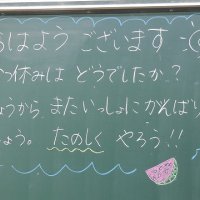 おはよう ございます :
つ休みは どうでしたか?
ょうから、またいっしょにがんばり
しょう。たのしく やろう!!